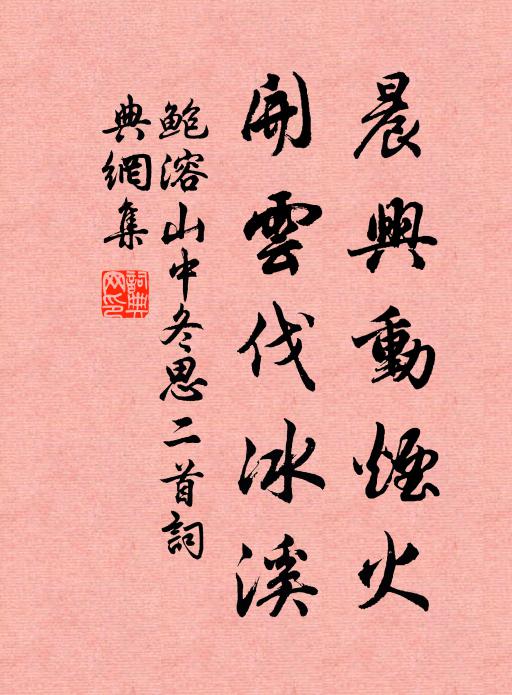 晨興動煙火
開雲伐冰溪
鮑溶山中冬思二首詞
典網集
詞典网印